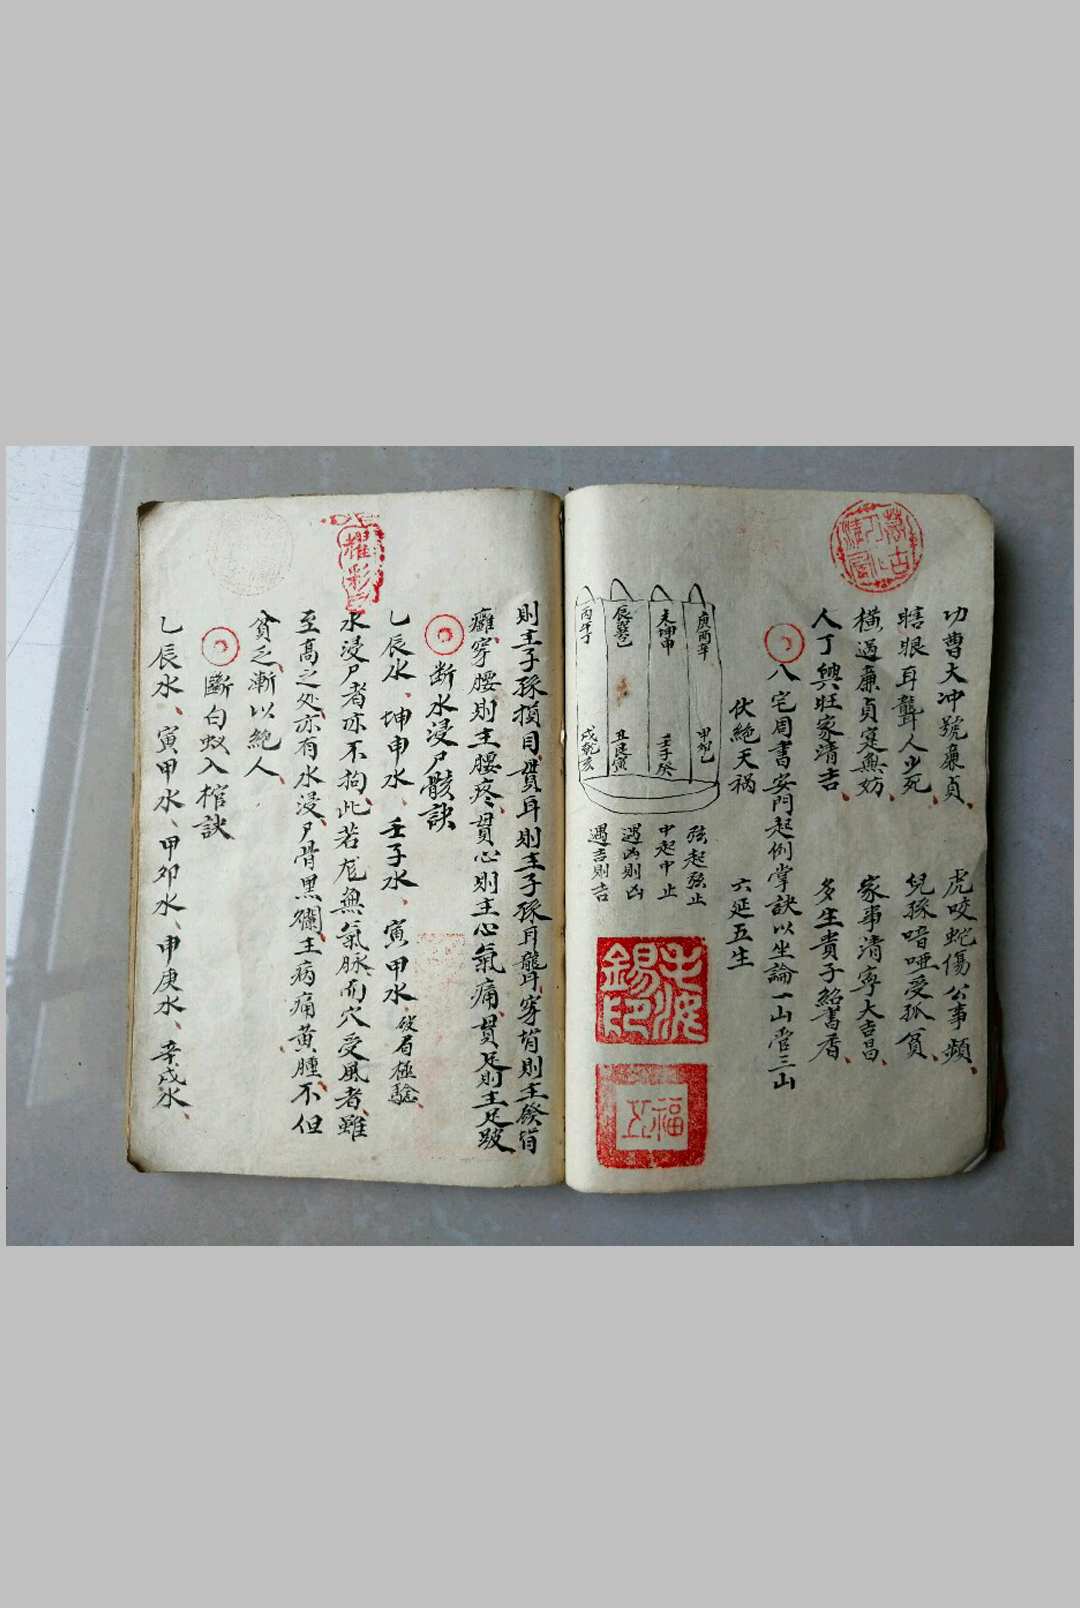 功曹大冲號廉貞 虎咬蛇傷公事頻
瞎眼耳聾人少死 兒孫喑啞受孤貧
橫過廉貞寔無妨 家事清寧大吉昌
人丁興旺家清吉 多生貴子紹書香
八宅周書安門起例掌訣以坐論一山管三山
伏絶天禍 六延五生
庚酉辛
未坤申
辰巽巳
丙午丁
甲卯乙
壬子癸
丑艮寅
戌乾亥
弦起弦止
中起中止
遇凶則凶
遇吉則吉
錫印
福
則主子孫損目貫耳則主子孫耳聾穿背則主發背
癰穿腰則主腰疼貫心則主心氣痛貫足則主足跛
断水浸尸骸訣
乙辰水坤申水壬子水寅甲水破局極驗
水浸尸者亦不拘此若龙無氣脉而穴受風者雖
至高之处亦有水浸尸骨黑爛主病痛黄腫不但
貧乏漸以絶人
斷白蚁入棺訣
乙辰水寅甲水甲卯水申庚水辛戌水
耀彩